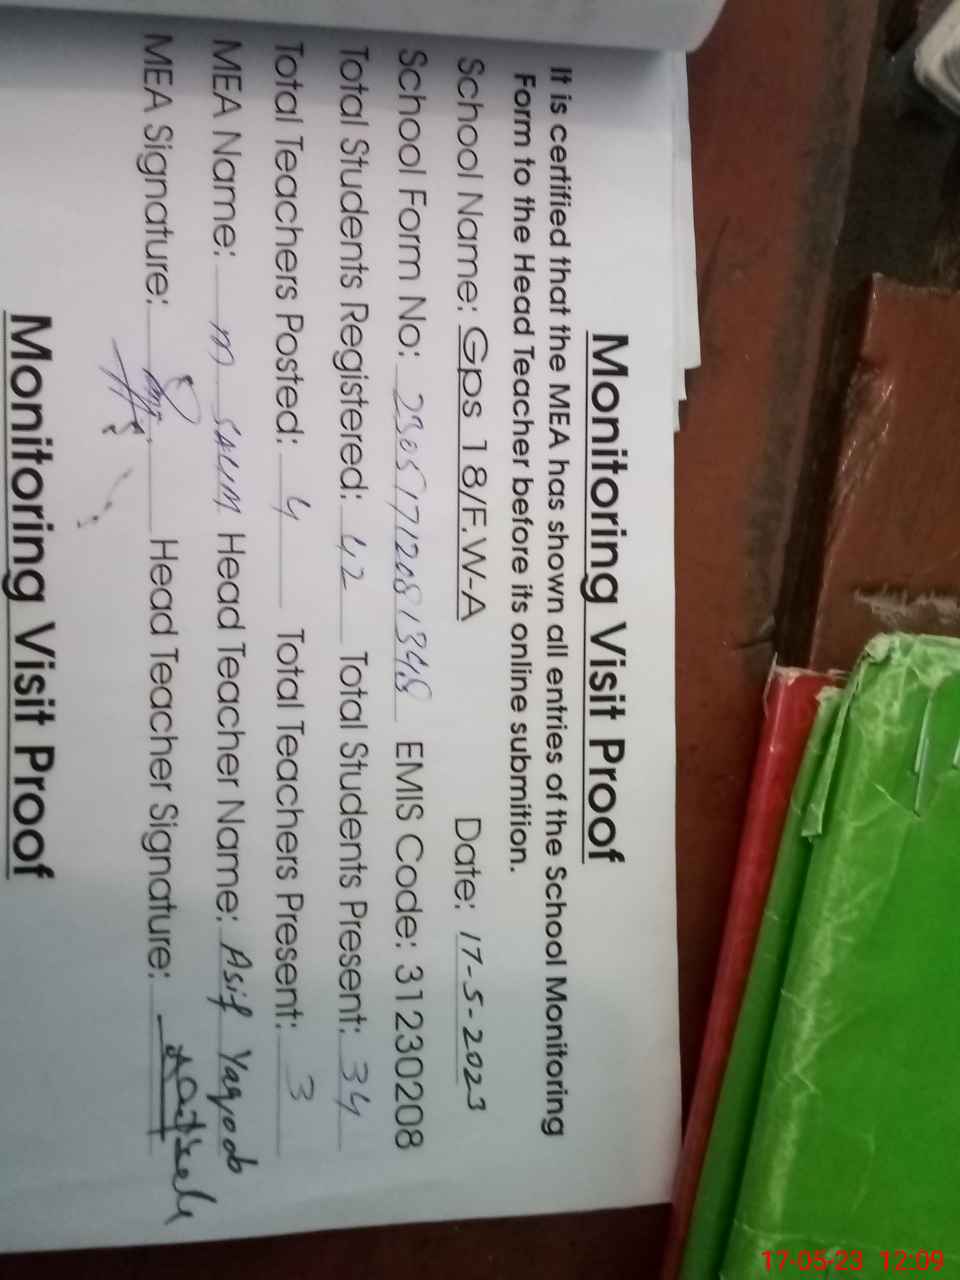 Monitoring Visit Proof
It is certified that the MEA has shown all entries of the School Monitoring
Form to the Head Teacher before its online submition.
School Name: Gps 18/F.W-A Date: 17-5-2023
School Form No: EMIS Code: 31230208
Total Students Registered: 42 Total Students Present: 34
Total Teachers Posted: 4 Total Teachers Present: 3
MEA Name: M SALIM Head Teacher Name: Asif Yaqoob
MEA Signature: Head Teacher Signature:
Monitoring Visit Proof
17-05-23 12:09